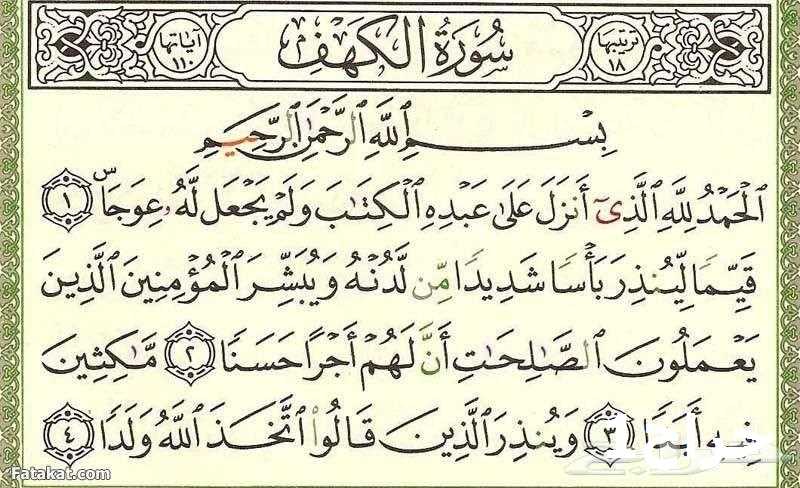 ترتيبها ١٨
سُورَةُ الكَهْفِ
آياتها ١١٠
بِسْمِ ٱللَّهِ ٱلرَّحْمَٰنِ ٱلرَّحِيمِ
ٱلْحَمْدُ لِلَّهِ ٱلَّذِىٓ أَنزَلَ عَلَىٰ عَبْدِهِ ٱلْكِتَٰبَ وَلَمْ يَجْعَل لَّهُۥ عِوَجَاۜ ١
قَيِّمًا لِّيُنذِرَ بَأْسًا شَدِيدًا مِّن لَّدُنْهُ وَيُبَشِّرَ ٱلْمُؤْمِنِينَ ٱلَّذِينَ
يَعْمَلُونَ ٱلصَّٰلِحَٰتِ أَنَّ لَهُمْ أَجْرًا حَسَنًا ٢ مَّٰكِثِينَ
فِيهِ أَبَدًا ٣ وَيُنذِرَ ٱلَّذِينَ قَالُوا۟ ٱتَّخَذَ ٱللَّهُ وَلَدًا ٤
Fatakat.com